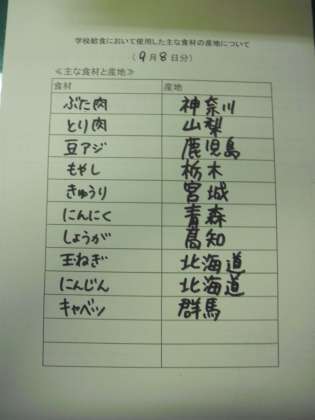 学校給食において使用した主な食材の産地について
(9月8日分)
≪主な食材と産地≫
食材 産地
ぶた肉 神奈川
とり肉 山梨
豆アジ 鹿児島
もやし 栃木
きゅうり 宮城
にんにく 青森
しょうが 高知
玉ねぎ 北海道
にんじん 北海道
キャベツ 群馬